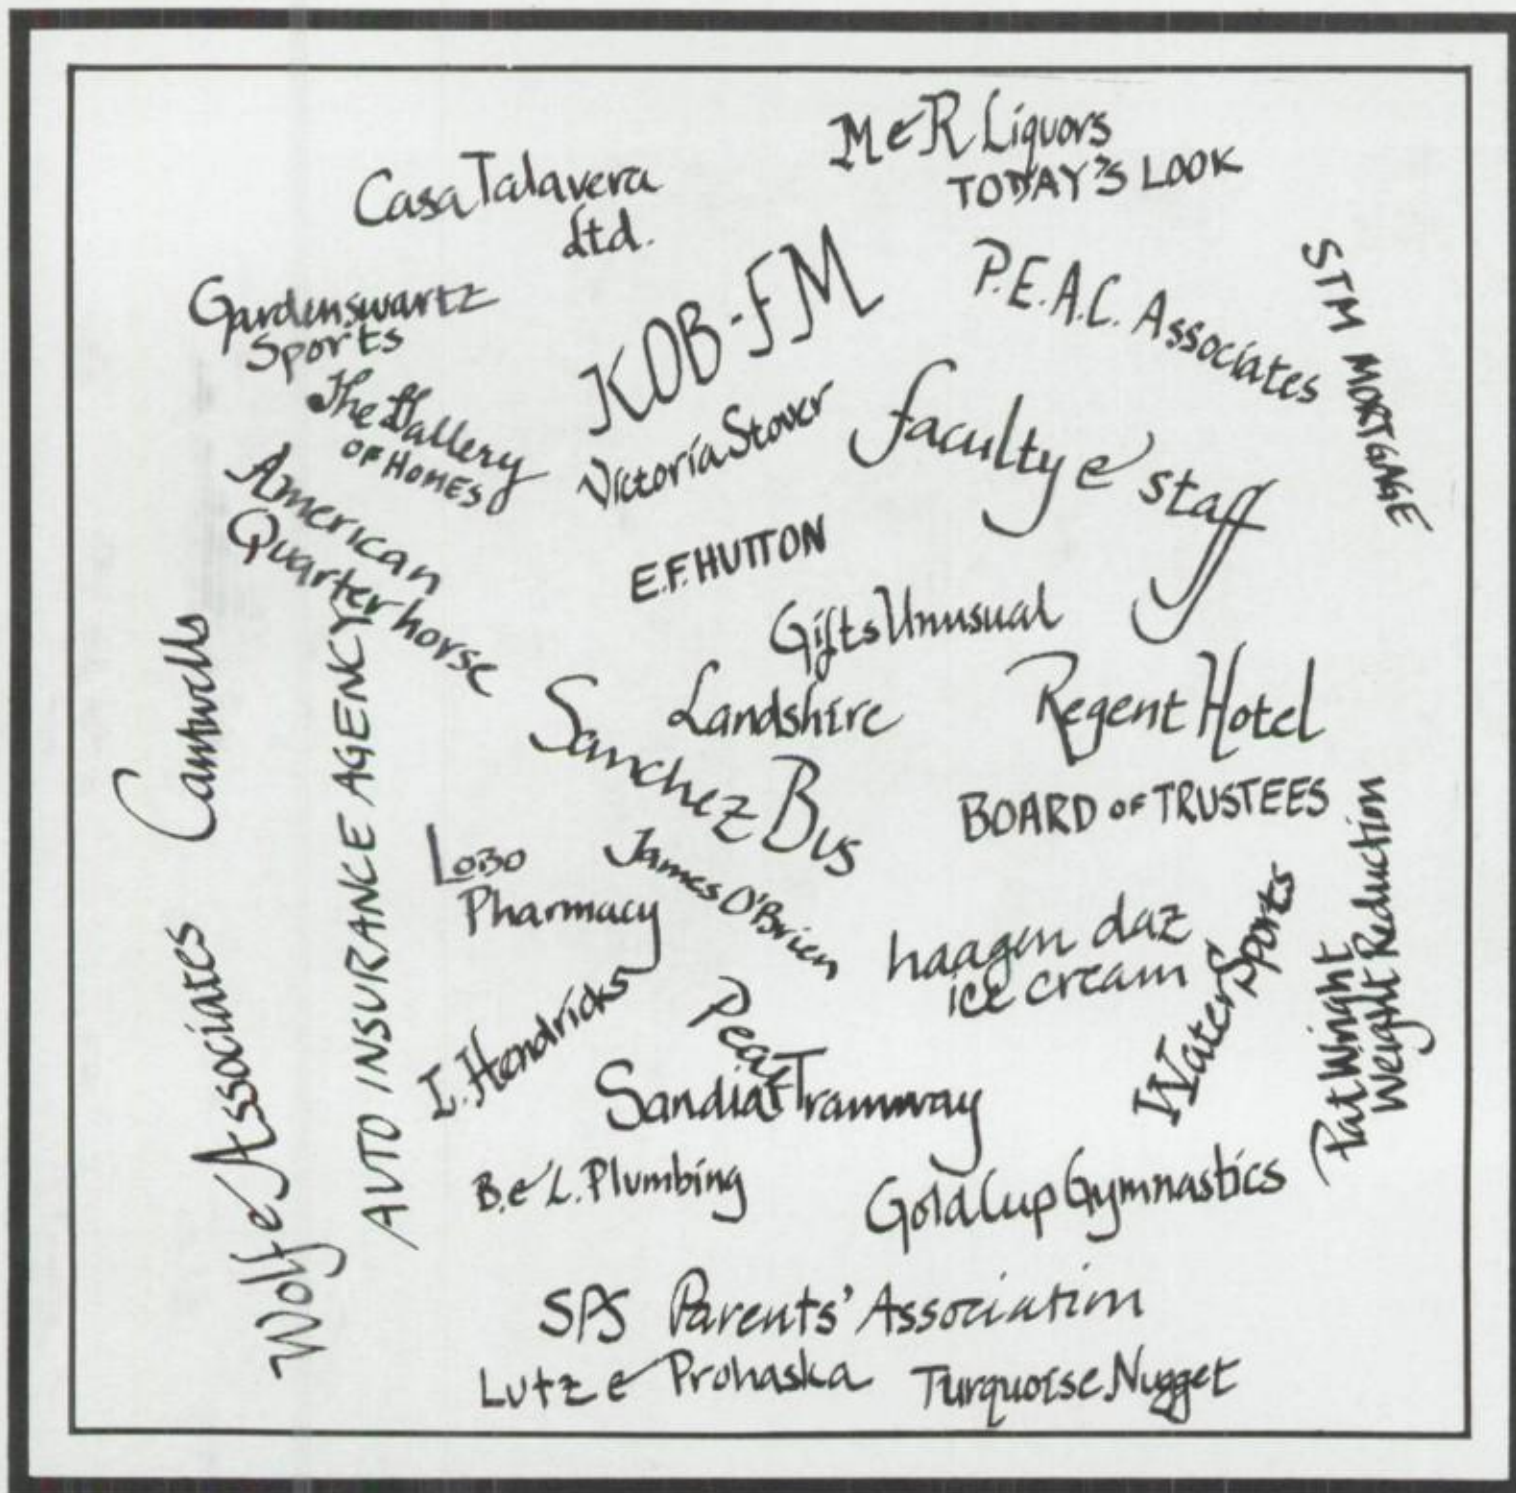 M & R Liquors
TODAY'S LOOK
Casa Talavera
Ltd.
KOB-FM
P.E.A.C. Associates
STM MORTGAGE
Gardenswartz
Sports
The Gallery
OF HOMES
Victoria Stover
faculty & staff
American
Quarter horse
E.F. HUTTON
Gifts Unusual
Cantwells
AUTO INSURANCE AGENCY
Landshire
Regent Hotel
Sanchez Bus
BOARD OF TRUSTEES
Lobo
Pharmacy
James O'Brien
haagen daz
ice cream
Water Sports
Pat Wright
Weight Reduction
Wolfe Associates
I. Hendricks
Sandia Peak Tramway
B. & L. Plumbing
Gold Cup Gymnastics
SPS Parents' Association
Lutz & Prohaska
Turquoise Nugget